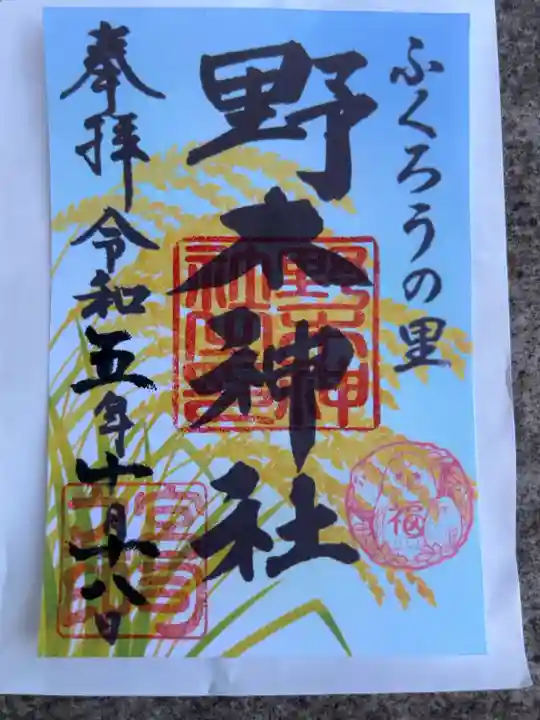 ふくろうの里
野木神社
奉拝
令和五年十月十八日
福